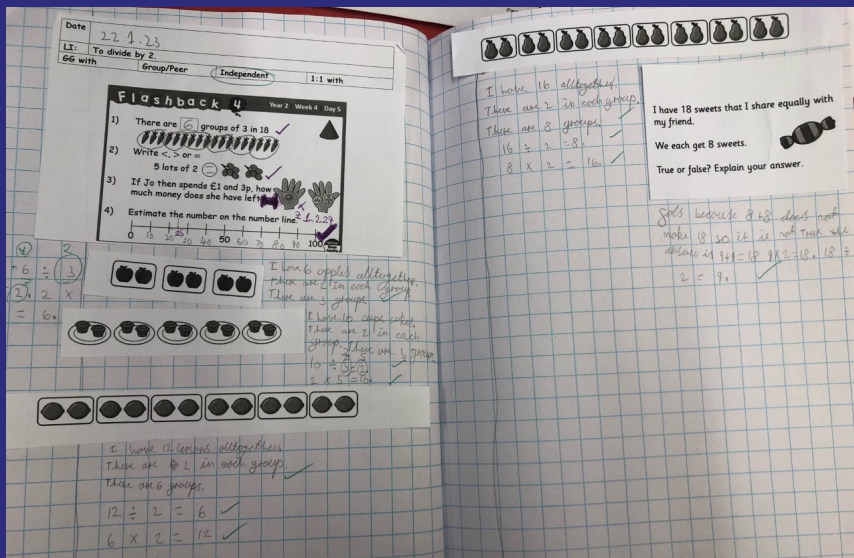 Date 22.1.23
LI: To divide by 2.
GG with Group/Peer Independent 1:1 with
Flashback 4 Year 2 Week 4 Day 5
1) There are 6 groups of 3 in 18
2) Write <, > or =
5 lots of 2 =
3) If Jo then spends £1 and 3p, how
much money does she have left
4) Estimate the number on the number line.
0 10 20 25 30 40 50 60 70 80 90 100
6 ÷ 3
2. 2 x
= 6.
I have 6 apples alltogether.
There are 2 in each group.
There are 3 groups.
I have 10 cupe cakes.
There are 2 in each
group. There are 5 groups.
10 ÷
2 x 5 = 10.
I have 12 lemons alltogether
There are 2 in each group.
There are 6 groups.
12 ÷ 2 = 6
6 x 2 = 12
I have 16 alltogether.
There are 2 in each group.
There are 8 groups.
16 ÷ 2 = 8.
8 x 2 = 16.
I have 18 sweets that I share equally with
my friend.
We each get 8 sweets.
True or false? Explain your answer.
because 8+8 does not
make 18 so it is not True the
answer is 9+9=18 9x2=18. 18 ÷
2 = 9.